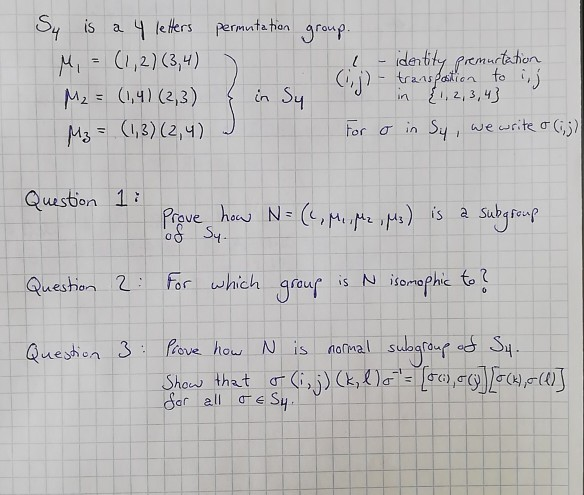 S₄ is a 4 letters permutation group.
μ₁ = (1,2)(3,4)
μ₂ = (1,4)(2,3) } in S₄
μ₃ = (1,3)(2,4)
ι - identity premurtation
(i,j) - transpostion to i,j
in {1,2,3,4}
For σ in S₄, we write σ(i,j)
Question 1:
Prove how N = (ι, μ₁, μ₂, μ₃) is a subgroup
of S₄.
Question 2: For which group is N isomophic to?
Question 3: Prove how N is normal subgroup of S₄.
Show that σ(i,j)(k,l)σ⁻¹ = [σ(i),σ(j)][σ(k),σ(l)]
for all σ ∈ S₄.